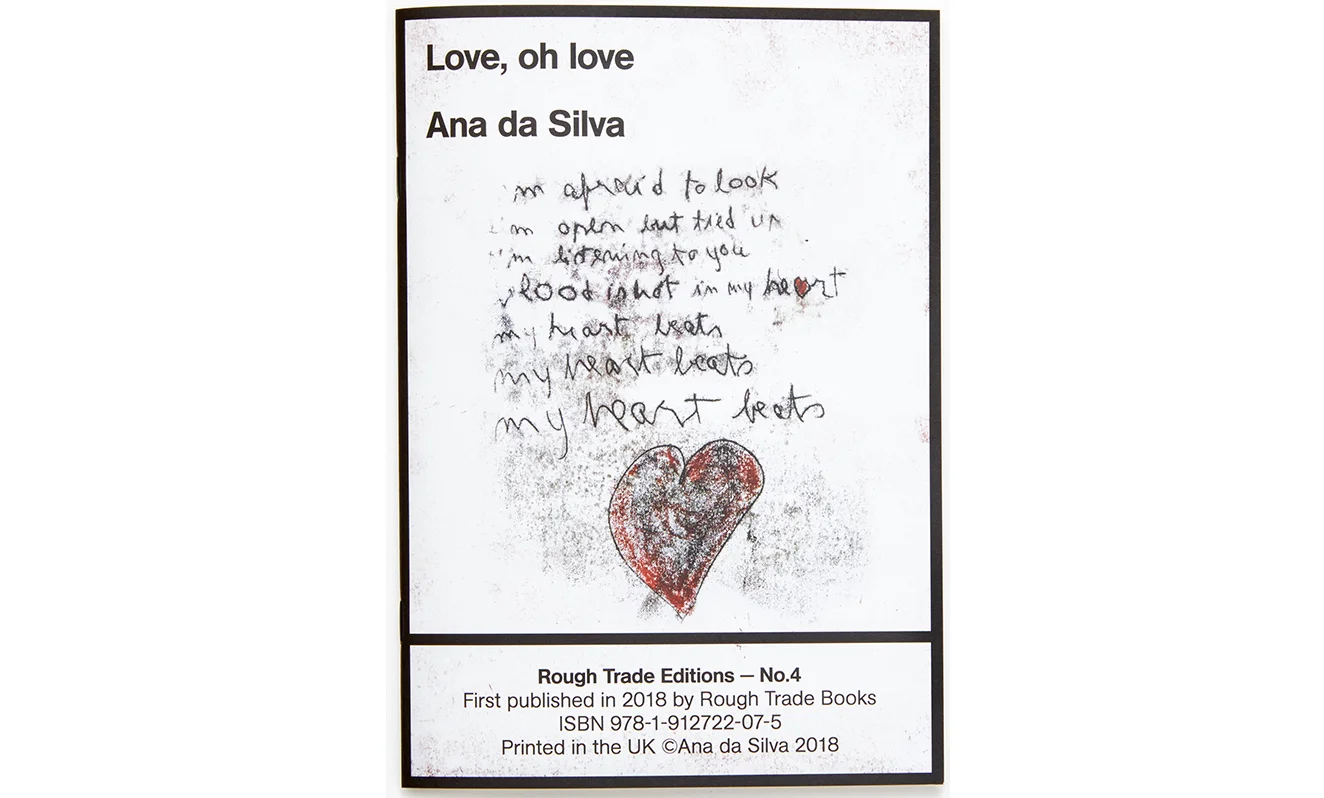 Love, oh love
Ana da Silva
'm afraid to look
i'm open but tied up
i'm listening to you
blood is hot in my heart
my heart beats
my heart beats
my heart beats
Rough Trade Editions — No.4
First published in 2018 by Rough Trade Books
ISBN 978-1-912722-07-5
Printed in the UK ©Ana da Silva 2018